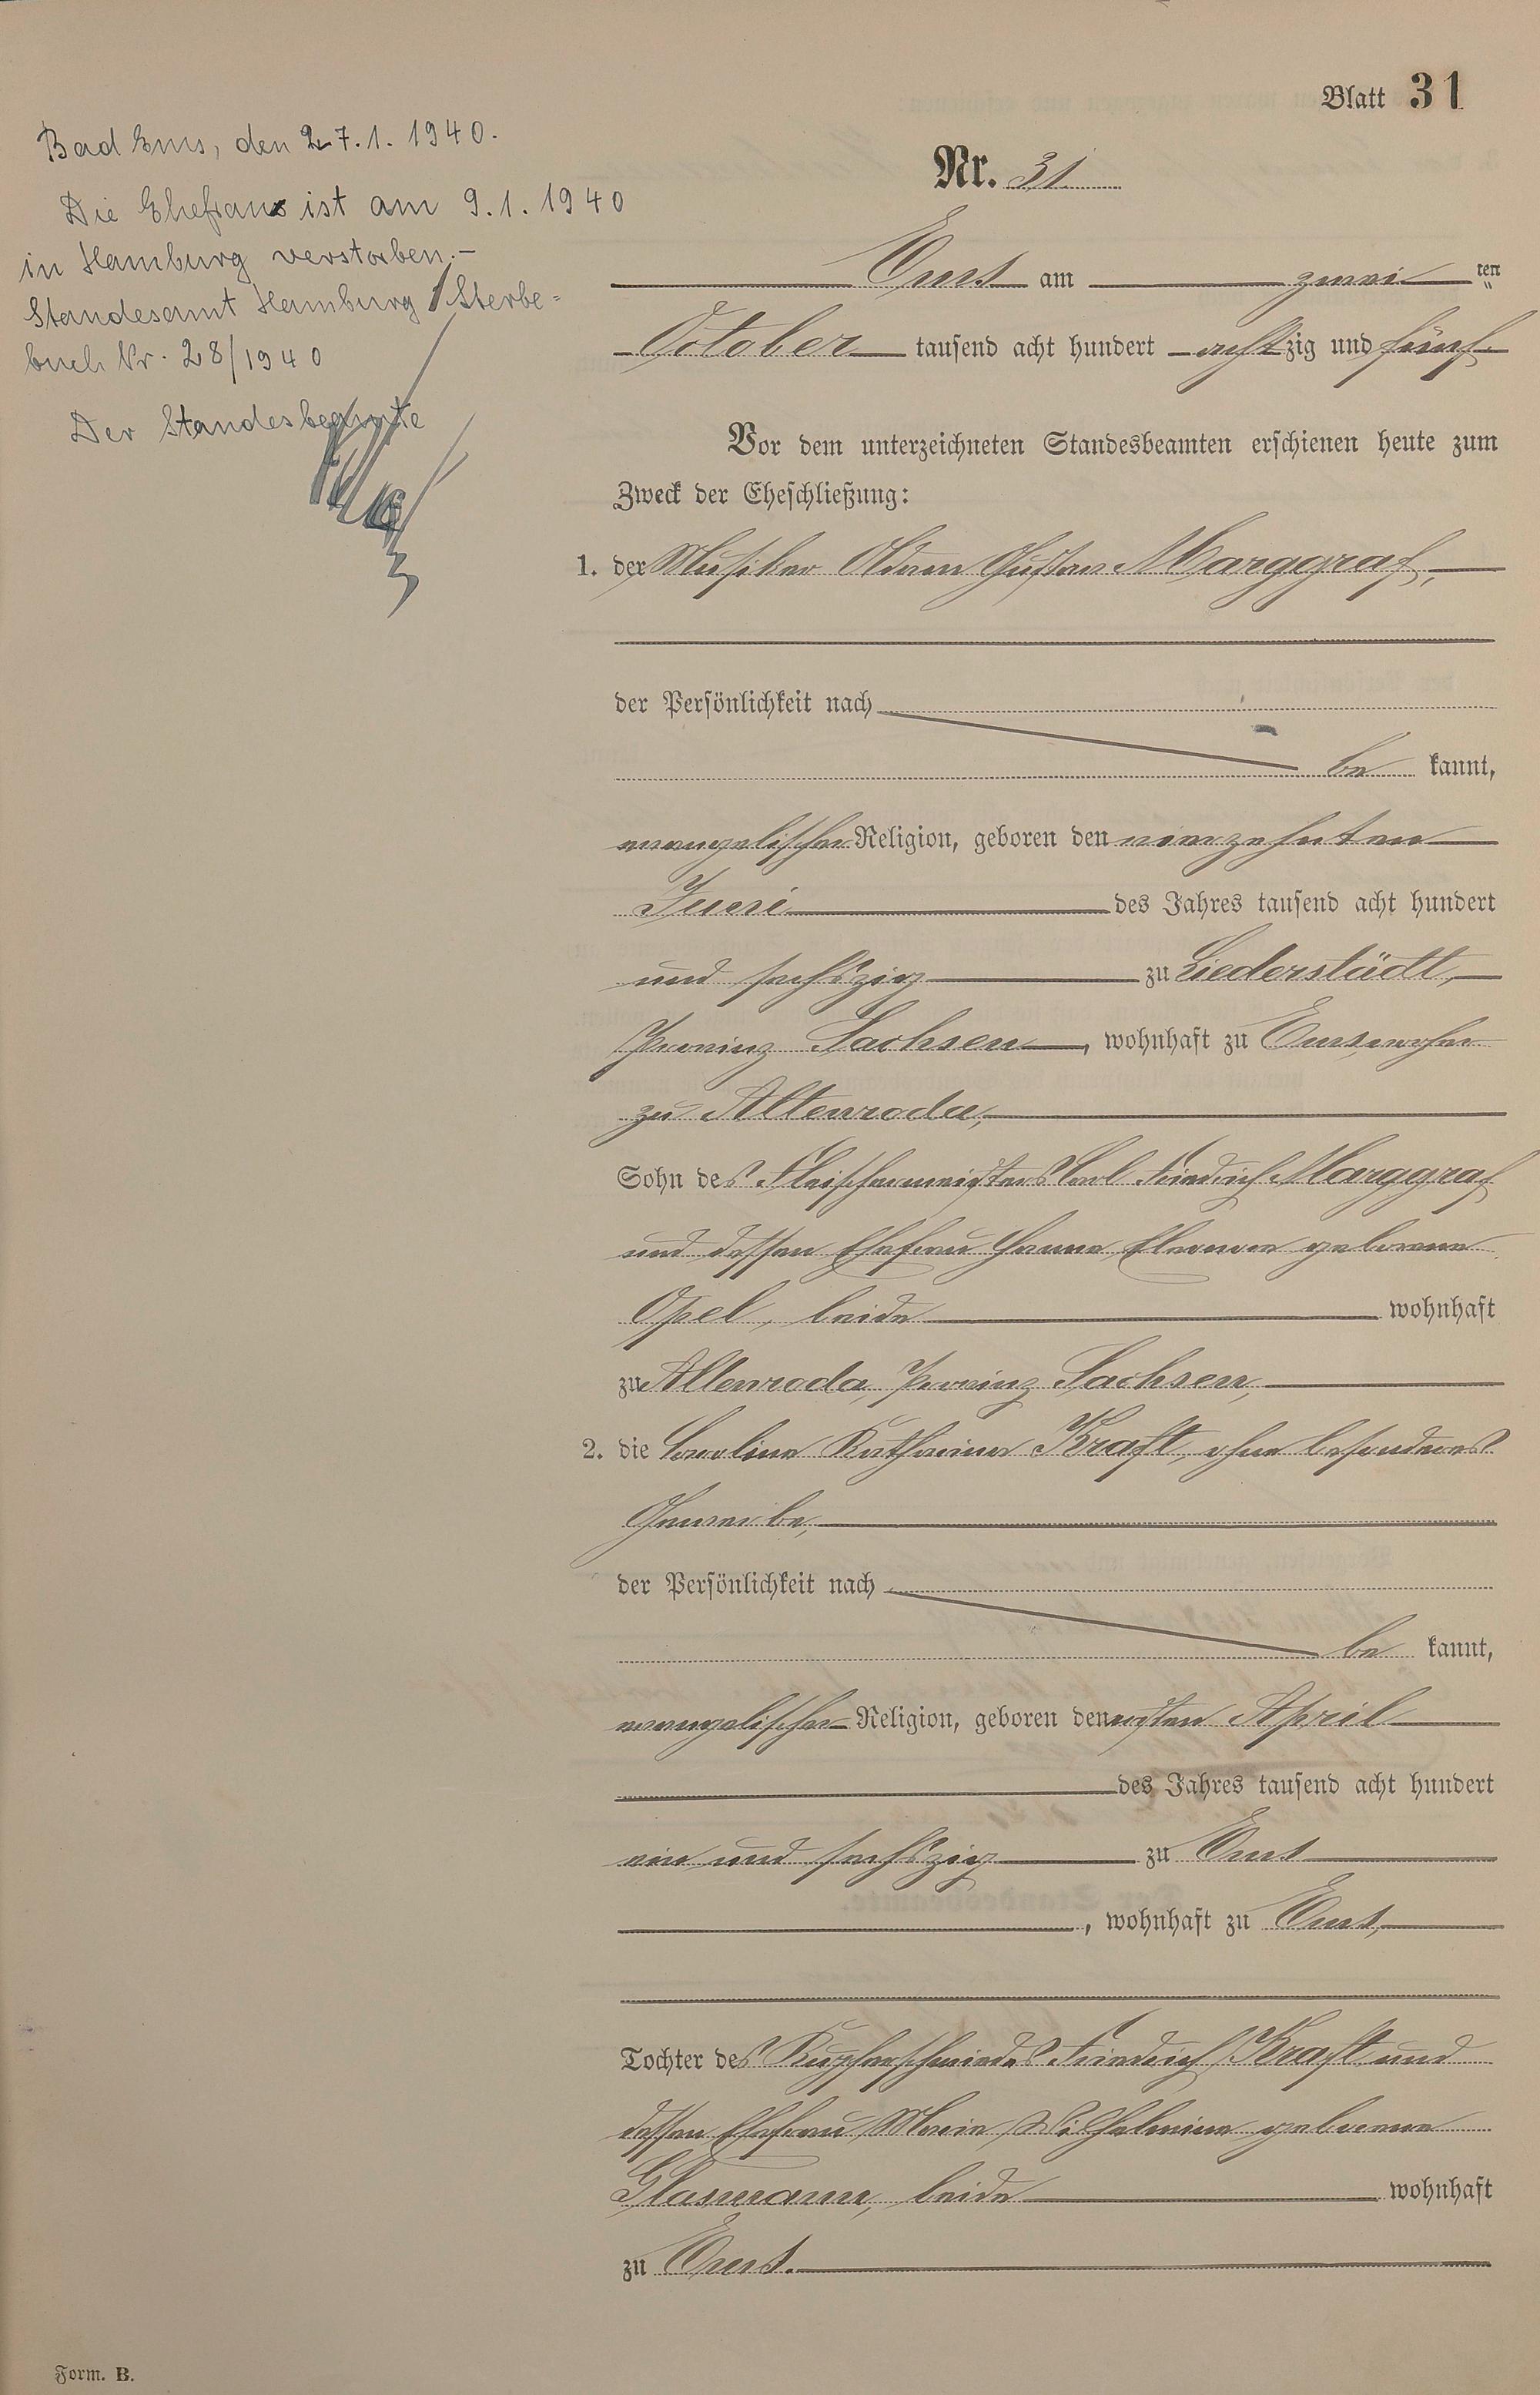 Blatt 31
Bad Ems, den 27. 1. 1940.
Die Ehefrau ist am 9. 1. 1940
in Hamburg verstorben. –
Standesamt Hamburg 1 Sterbe=
buch Nr. 28/1940
Der Standesbeamte
Nr. 31.
Ems am zwei ten
October tausend acht hundert achtzig und fünf.
Vor dem unterzeichneten Standesbeamten erschienen heute zum
Zweck der Eheschließung:
1. der Musiker Adam Gustav Marggraf,
der Persönlichkeit nach
be kannt,
evangelischer Religion, geboren den vierzehnten
Juni des Jahres tausend acht hundert
und sechszig zu Liederstädt,
Provinz Sachsen, wohnhaft zu Ems, vorher
zu Altenroda,
Sohn des Fleischermeisters Carl Friedrich Marggraf
und dessen Ehefrau Hanne Eleonore geborene
Opel, beide wohnhaft
zu Altenroda, Provinz Sachsen,
2. die Caroline Katharina Kraft, ohne besonderes
Gewerbe,
der Persönlichkeit nach
be kannt,
evangelischer Religion, geboren den ersten April
des Jahres tausend acht hundert
ein und sechszig zu Ems
, wohnhaft zu Ems,
Tochter des Kupferschmiedes Friedrich Kraft und
dessen Ehefrau Marie Wilhelmine geborene
Glasmann, beide wohnhaft
zu Ems.
Form. B.